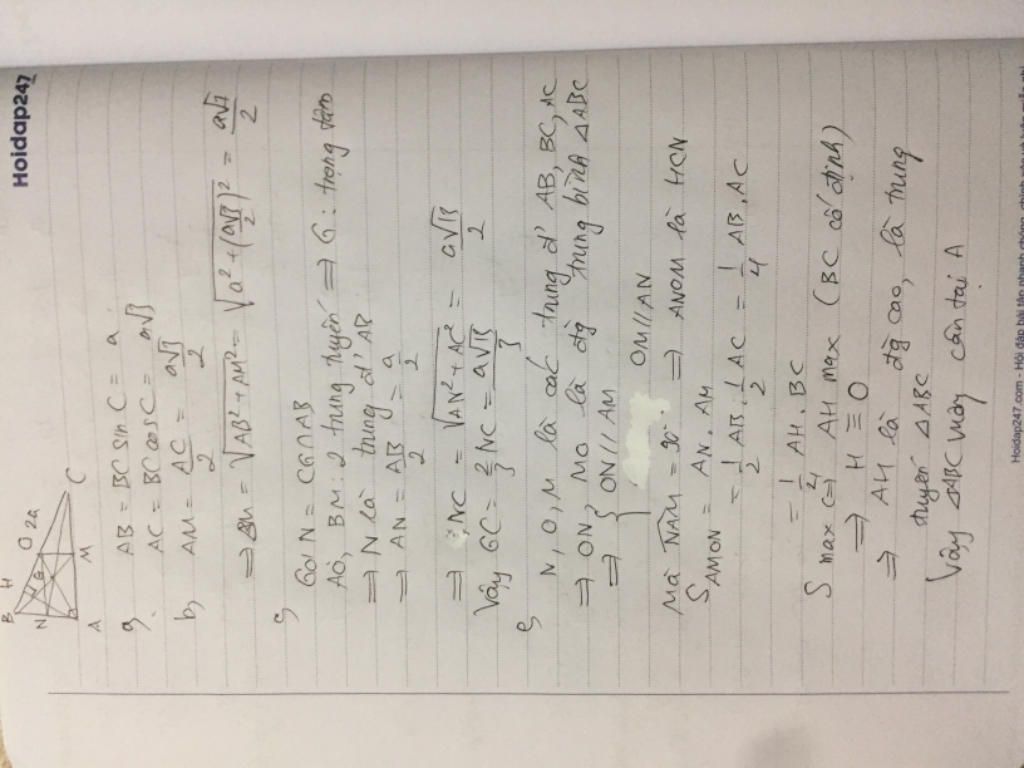 Hoidap247
B H O 2a C
N G M
A
a, AB = BC sin C = a
AC = BC cos C = a√3
b, AM = AC/2 = a√3/2
=> BM = √(AB² + AM²) = √(a² + (a√3/2)²) = a√7/2
c, Gọi N = CG ∩ AB
AO, BM : 2 trung tuyến => G : trọng tâm
=> N là trung đ' AB
=> AN = AB/2 = a/2
=> NC = √(AN² + AC²) = a√13/2
Vậy GC = 2/3 NC = a√13/3
e, N, O, M là các trung đ' AB, BC, AC
=> ON, MO là đg trung bình △ABC
=> { ON // AM
OM // AN
Mà NAM = 90° => ANOM là HCN
S AMON = AN . AM
= 1/2 AB . 1/2 AC = 1/4 AB . AC
= 1/4 AH . BC
S max <=> AH max (BC cố định)
=> H ≡ O
=> AH là đg cao, là trung
tuyến △ABC
Vậy △ABC vuông cân tại A